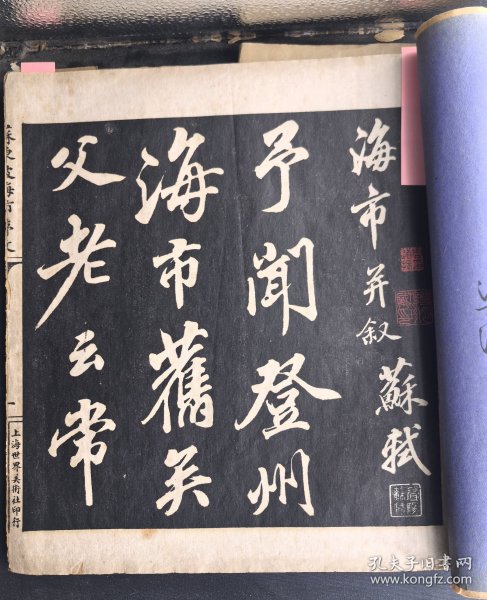 海市并叙 蘇軾
予聞登州
海市舊矣
父老云常
蘇東坡海市
一
上海世界美術社印行
孔夫子旧书网
www.kongfz.com